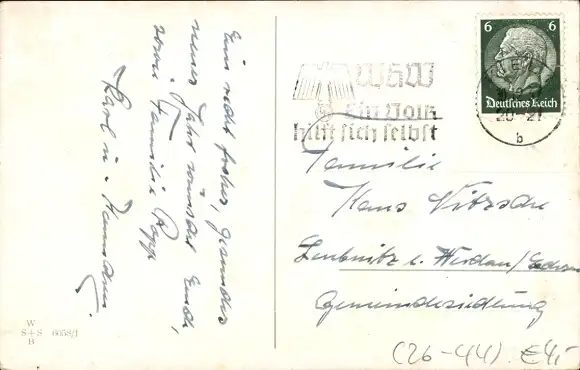 Ein recht frohes, gesundes
neues Jahr wünscht Euch,
Familie
Karl u.
W
S+S 6058/1
B
6 6
Deutsches Reich
20-21
b
WHW
Ein Volk
hilft sich selbst
Familie
Hans Nitzsche
Leubnitz b. Werdau/Sachsen
Gemeindesiedlung
(26-44). €4,-